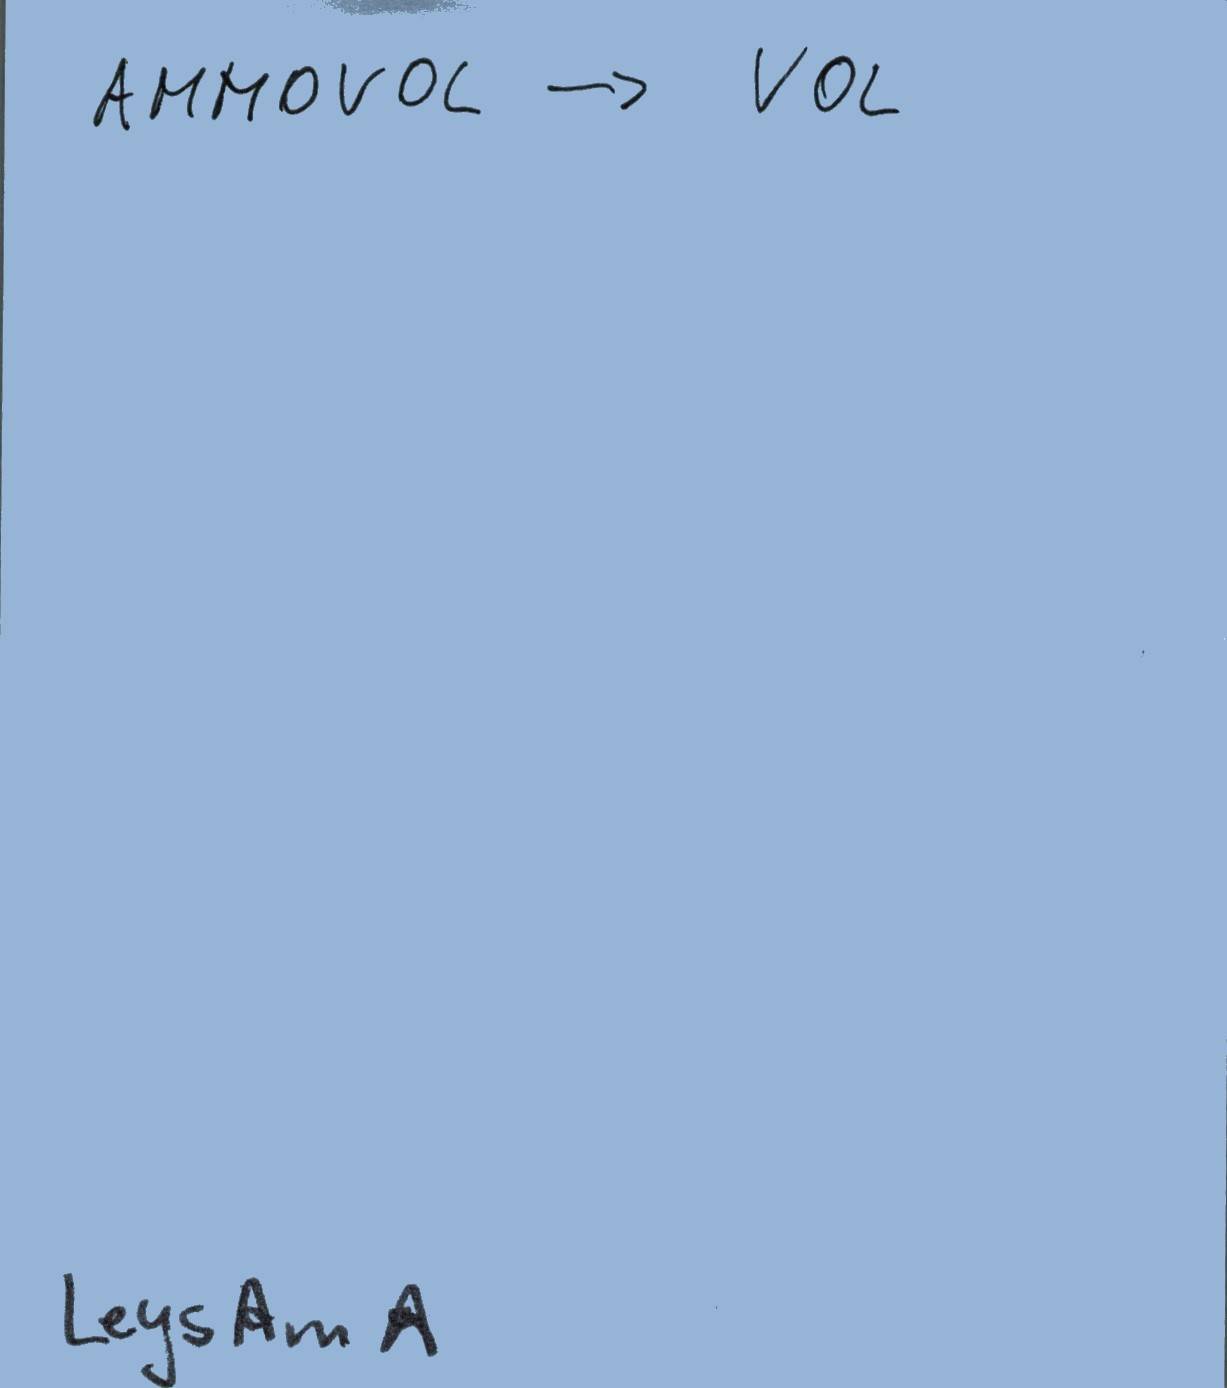 AMMOVOL → VOL
LeysAm A